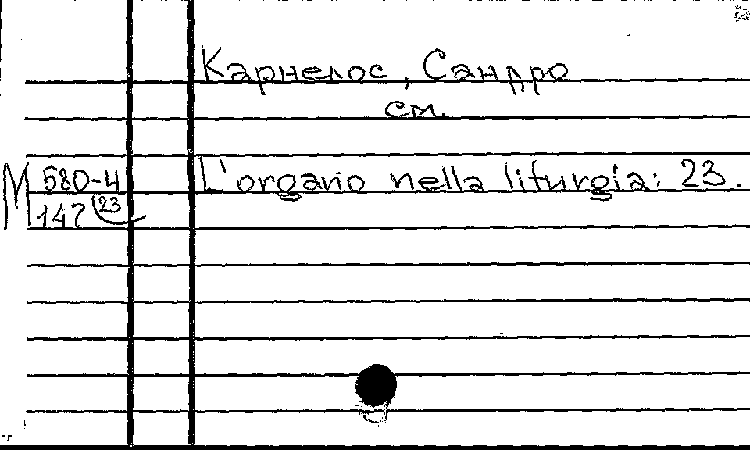 Карнелос, Сандро
см.
М 580-4 L'organo nella liturgia: 23.
147 (23